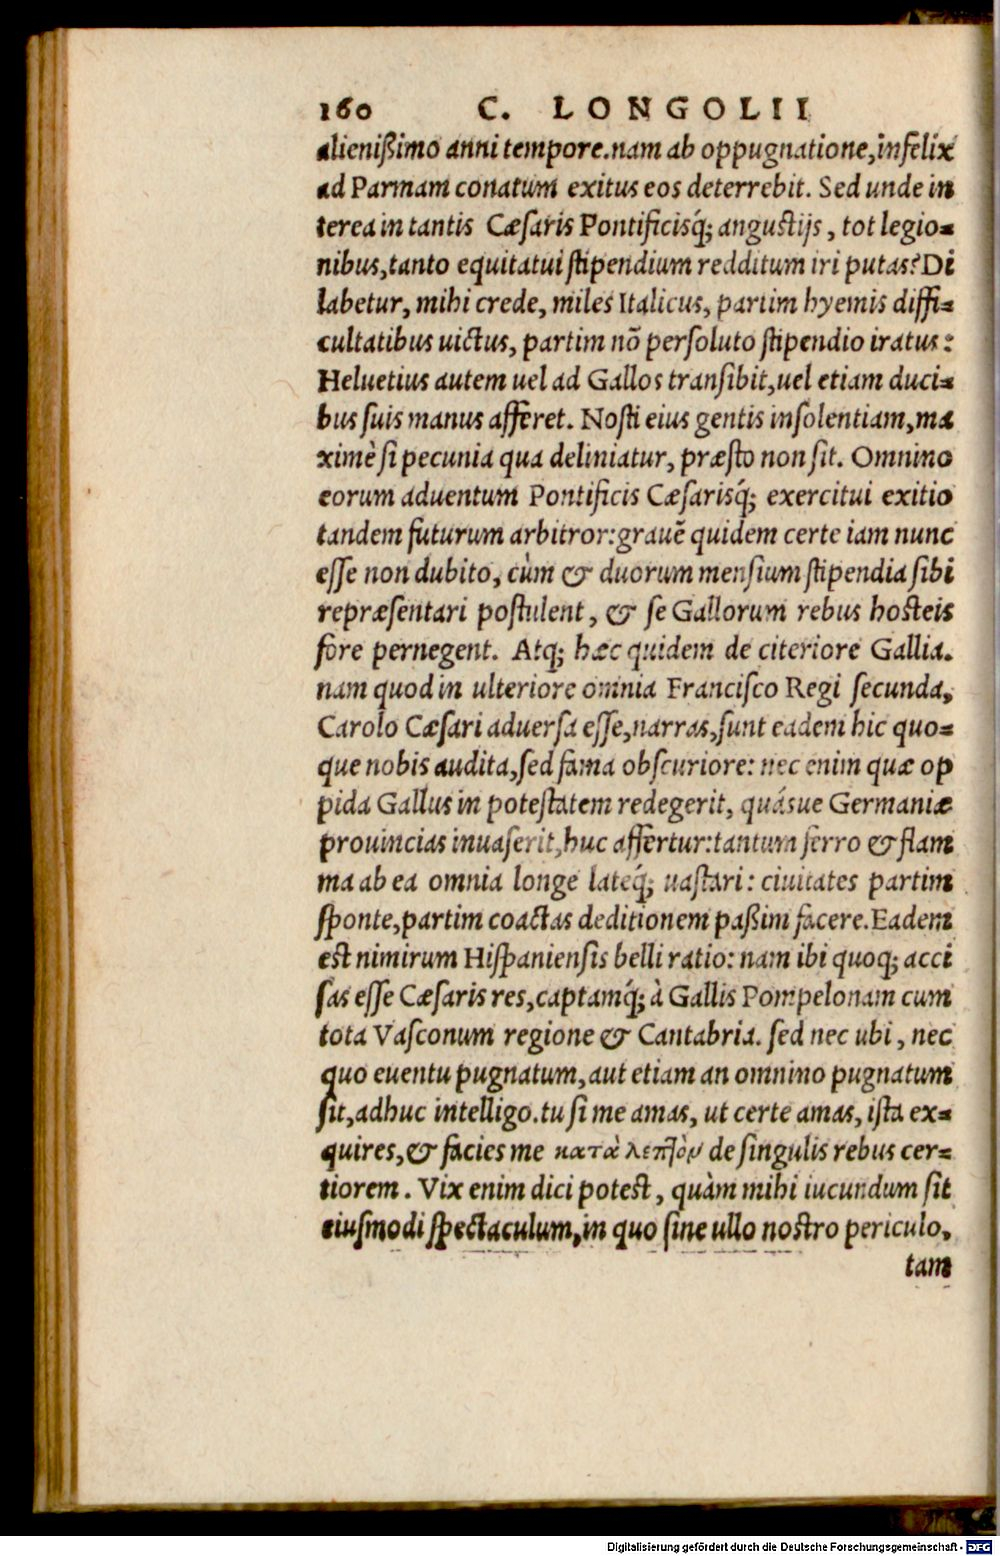 160 C. LONGOLII
alienißimo anni tempore.nam ab oppugnatione,infelix
ad Parmam conatum exitus eos deterrebit. Sed unde in
terea in tantis Cæsaris Pontificisq́; angustijs, tot legio-
nibus,tanto equitatui stipendium redditum iri putas?Di
labetur, mihi crede, miles Italicus, partim hyemis diffi-
cultatibus uictus, partim nõ persoluto stipendio iratus:
Heluetius autem uel ad Gallos transibit,uel etiam duci-
bus suis manus afferet. Nosti eius gentis insolentiam,ma
ximè si pecunia qua deliniatur, præsto non sit. Omnino
eorum aduentum Pontificis Cæsarisq́; exercitui exitio
tandem futurum arbitror:grauẽ quidem certe iam nunc
esse non dubito, cùm & duorum mensium stipendia sibi
repræsentari postulent, & se Gallorum rebus hosteis
fore pernegent. Atq; hæc quidem de citeriore Gallia.
nam quod in ulteriore omnia Francisco Regi secunda,
Carolo Cæsari aduersa esse,narras,sunt eadem hic quo-
que nobis audita,sed fama obscuriore: nec enim quæ op
pida Gallus in potestatem redegerit, quásue Germaniæ
prouincias inuaserit,huc affertur:tantum ferro & flam
ma ab ea omnia longe lateq́; uastari: ciuitates partim
sponte,partim coactas deditionem paßim facere.Eadem
est nimirum Hispaniensis belli ratio: nam ibi quoq; acci
sas esse Cæsaris res,captamq́; à Gallis Pompelonam cum
tota Vasconum regione & Cantabria. sed nec ubi, nec
quo euentu pugnatum,aut etiam an omnino pugnatum
sit,adhuc intelligo.tu si me amas, ut certe amas, ista ex-
quires,& facies me κατὰ λεπτὸν de singulis rebus cer-
tiorem. Vix enim dici potest, quàm mihi iucundum sit
eiusmodi spectaculum,in quo sine ullo nostro periculo,
tam
Digitalisierung gefördert durch die Deutsche Forschungsgemeinschaft - DFG